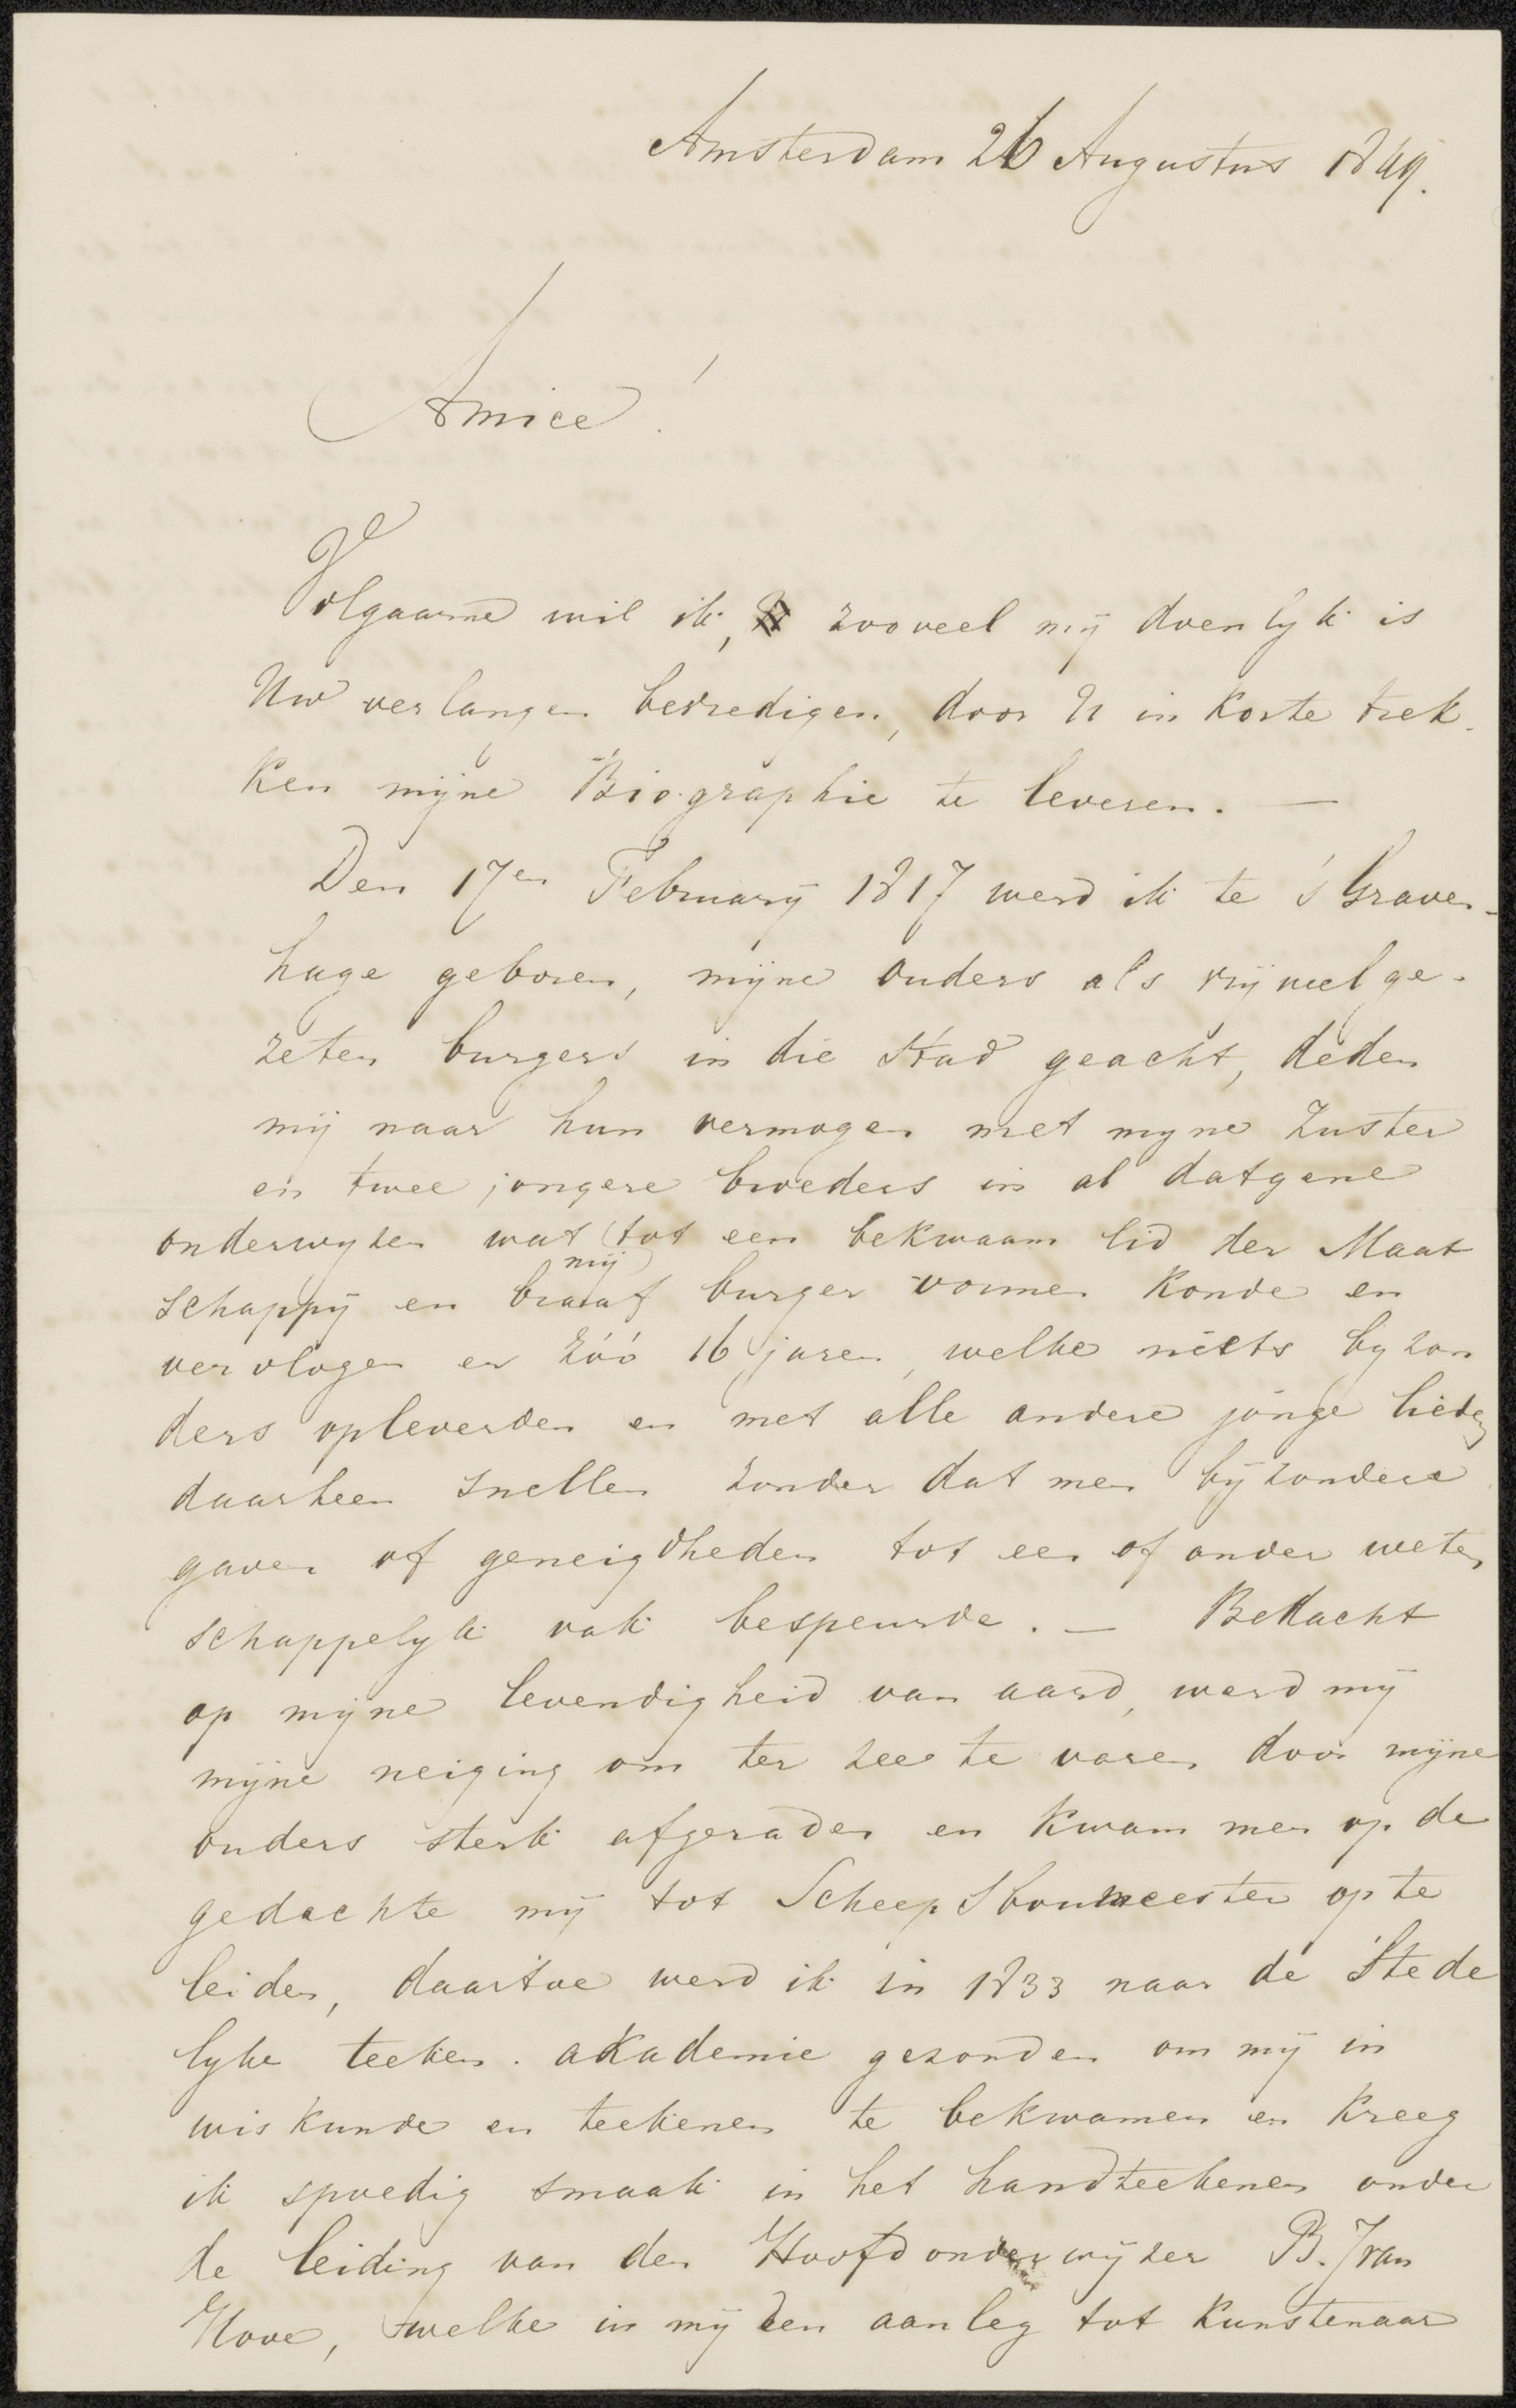 Amsterdam 26 Augustus 1849.
Amice!
Volgaarne wil ik, zooveel mij doenlyk is
Uw verlangen bevredigen, door U in korte trek-
ken mijne Biographie te leveren. —
Den 17en February 1817 werd ik te s'Graven-
hage geboren, mijne ouders als vrij welge-
zeten burgers in die stad geacht, deden
mij naar hun vermogen met myne Zuster
en twee jongere broeders in al datgene
onderwyzen wat tot een bekwaam lid der Maat
mij
schappij en braaf burger vormen konde en
vervlogen er zóó 16 jaren, welke niets byzon
ders opleverden en met alle andere jonge lieden
daarheen snellen zonder dat men byzondere
gaven of geneigdheden tot een of ander weten
schappelyk vak bespeurde. — Bedacht
op mijne levendigheid van aard, werd mij
mijne neiging om ter zee te varen door mijne
ouders sterk afgeraden en kwam men op de
gedachte mij tot Scheepsbouwmeester op te
leiden, daartoe werd ik in 1833 naar de Stede
lyke teeken. akademie gezonden om mij in
wiskunde en teekenen te bekwamen en kreeg
ik spoedig smaak in het handteekenen onder
de leiding van den Hoofdonderwijzer B. J van
Hove, welke in mij den aanleg tot kunstenaar